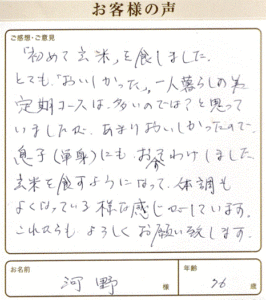 お客様の声
ご感想・ご意見
「初めて玄米」を食しました。
とても「おいしかった」。一人暮らしの為
定期コースは、多いのでは?と思って
いましたが、あまりおいしかったので、
息子(単身)にもおすそわけしました
玄米を食すようになって、体調も
よくなっている様な感じがしています。
これからもよろしくお願い致します。
お名前
河野 様
年齢
76 歳